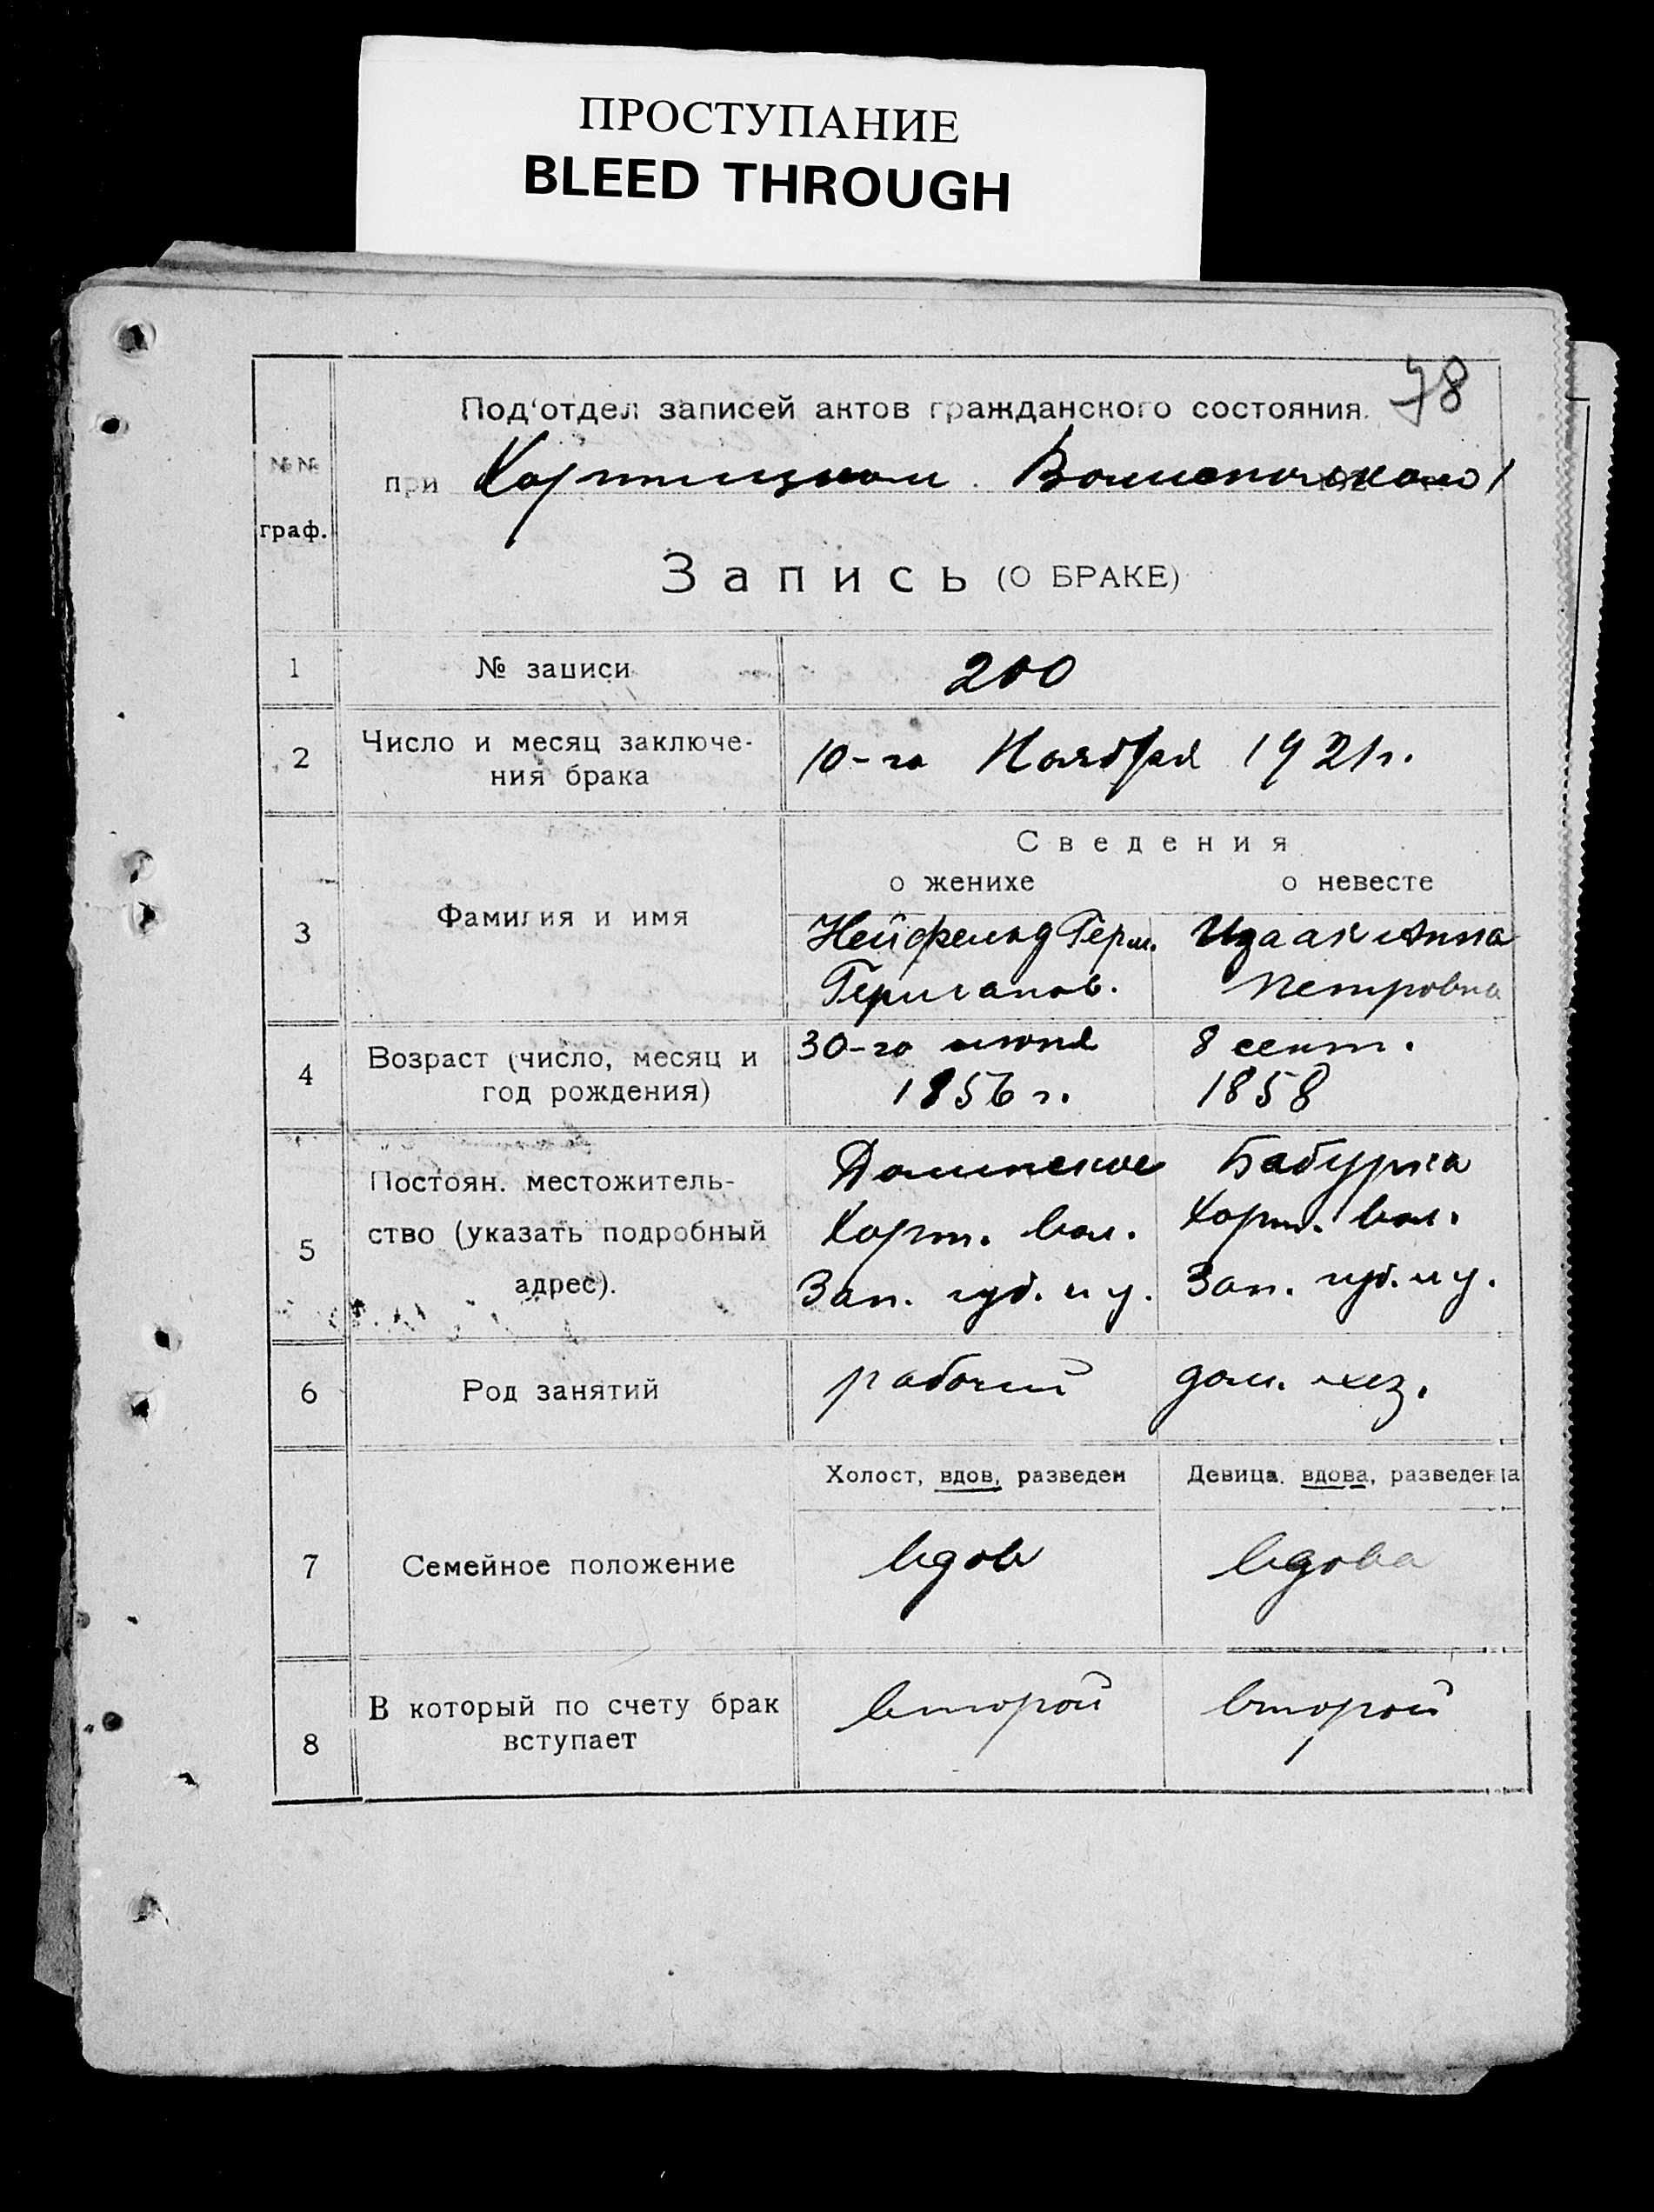 ПРОСТУПАНИЕ
BLEED THROUGH
78
Под'отдел записей актов гражданского состояния.
№№
граф.
при Хортицком
Запись (О БРАКЕ)
1 № записи 200
2 Число и месяц заключе-
ния брака
10-го Ноября 1921 г.
Сведения
о женихе о невесте
3 Фамилия и имя
Нейфельд Герм. Изаак Анна
Германов. Петровна
4 Возраст (число, месяц и
год рождения)
30-го июня 8 сент.
1856 г. 1858
5 Постоян. местожитель-
ство (указать подробный
адрес).
Долинское Бабурка
Хорт. вол. Хорт. вол.
Зап. губ. и у. Зап. губ. и у.
6 Род занятий рабочий дом. хоз.
Холост, вдов, разведен Девица, вдова, разведена
7 Семейное положение вдов вдова
8 В который по счету брак
вступает
второй второй